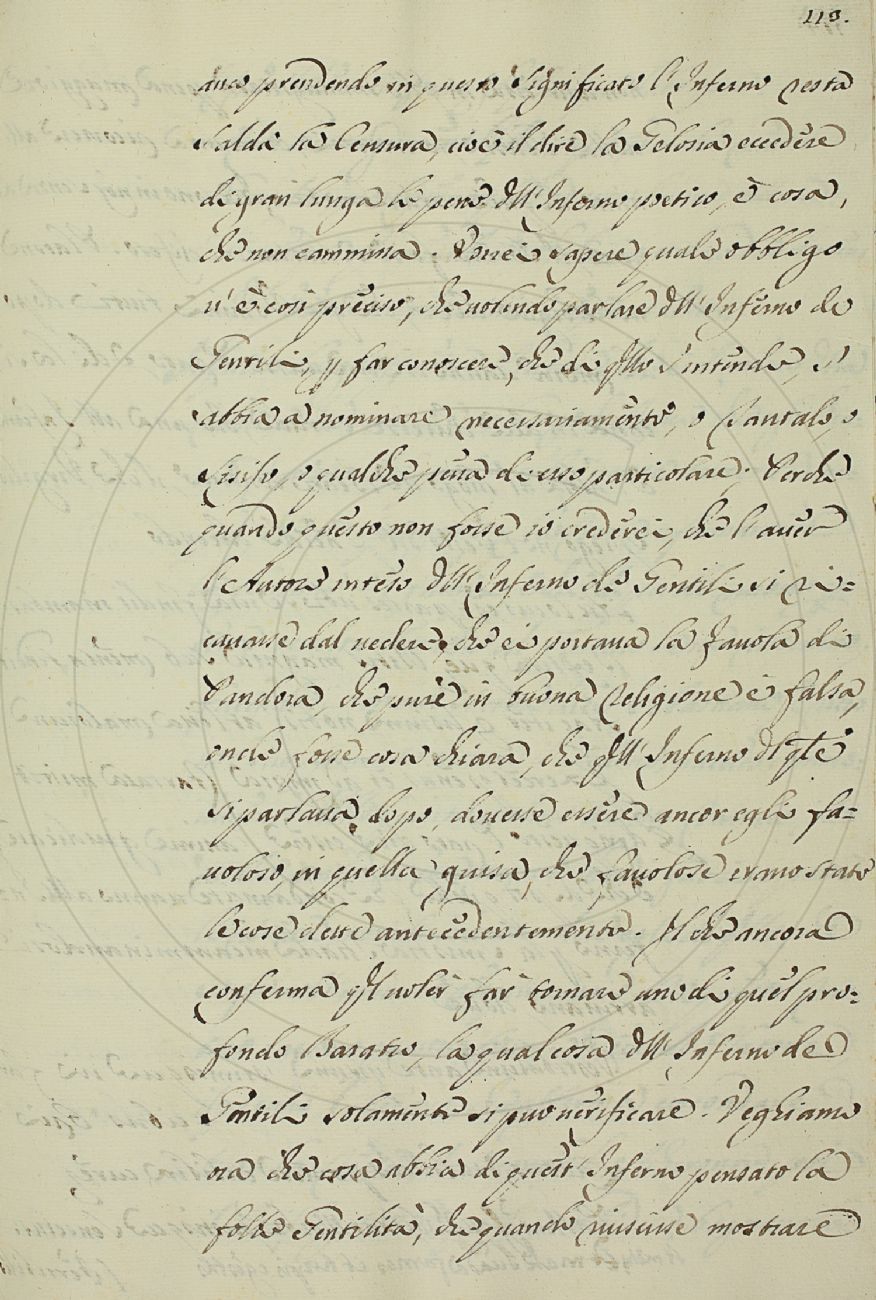 113.
dunq prendendo in questo significato l'Inferno resta
salda la Censura, cioè il dire la Gelosia eccedere
di gran lunga le pene dell'Inferno poetico, è cosa,
che non cammina. Vorrei sapere quale obbligo
v'è così preciso, che volendo parlare dell'Inferno de
Gentili, p far conoscere, che di qllo s'intende, s'
abbia a nominare necessariamente, o Tantalo, o
Sisifo, o qualche pena di esso particolare; Perche
quando questo non fosse io crederei, che l'aver
l'Autore inteso dell'Inferno de Gentili si ri=
cavasse dal vedere, che ei portava la favola di
Pandora, che pure in buona religione è falsa,
onde fosse cosa chiara, che qll'Inferno del qle
si parlava dopo, dovesse essere ancor egli fa=
voloso, in quella guisa, che favolose erano state
le cose dette antecedentemente. Il che ancora
conferma qll voler far tornare uno di quel pro=
fondo Baratro, la qual cosa dell'Inferno de
Gentili solamente si può verificare. Veghiamo
ora che cosa abbia di quest'Inferno pensato la
folle Gentilità, che quando riuscisse mostrare